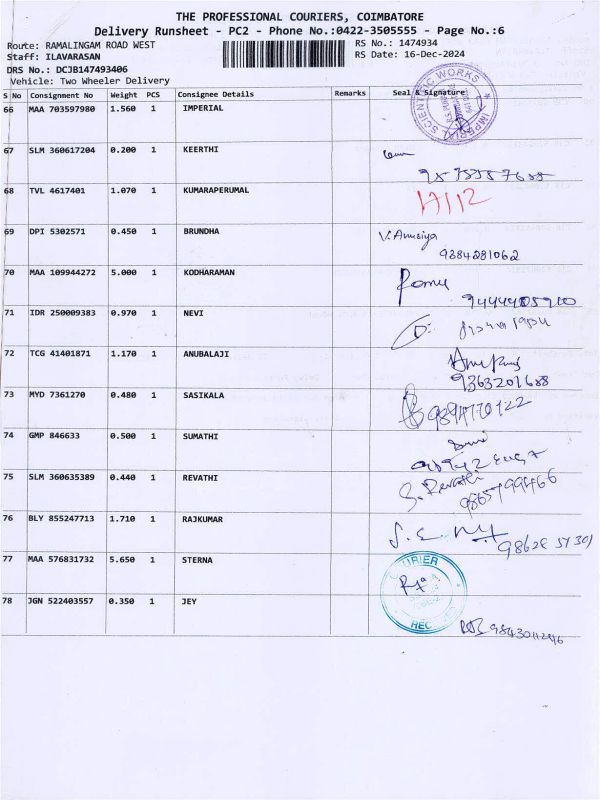 THE PROFESSIONAL COURIERS, COIMBATORE
Delivery Runsheet - PC2 - Phone No.:0422-3505555 - Page No.:6
Route: RAMALINGAM ROAD WEST RS No.: 1474934
Staff: ILAVARASAN RS Date: 16-Dec-2024
DRS No.: DCJB147493406
Vehicle: Two Wheeler Delivery
S No Consignment No Weight PCS Consignee Details Remarks Seal & Signature
66 MAA 703597980 1.560 1 IMPERIAL
IMPERIAL SCIENTIFIC WORKS
67 SLM 360617204 0.200 1 KEERTHI
68 TVL 4617401 1.070 1 KUMARAPERUMAL
17/12
69 DPI 5302571 0.450 1 BRUNDHA V. Anusiya
9884281062
70 MAA 109944272 5.000 1 KODHARAMAN
71 IDR 250009383 0.970 1 NEVI
72 TCG 41401871 1.170 1 ANUBALAJI
9363201688
73 MYD 7361270 0.480 1 SASIKALA
9894170122
74 GMP 846633 0.500 1 SUMATHI
75 SLM 360635389 0.440 1 REVATHI S. Revathi
9865799466
76 BLY 855247713 1.710 1 RAJKUMAR
77 MAA 576831732 5.650 1 STERNA
COURIER
78 JGN 522403557 0.350 1 JEY